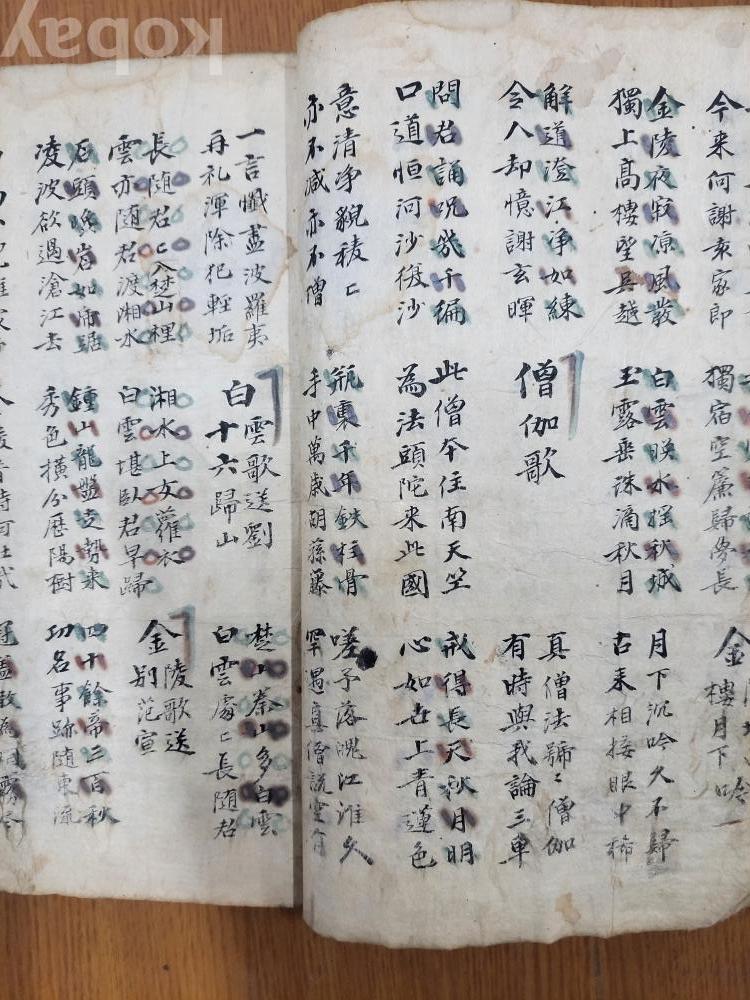 今来何謝袁家郎
獨宿空簾歸夢長
金
樓月下吟
金陵夜寂凉風發
獨上高樓望吳越
白雲映水揺秋城
玉露垂珠滴秋月
月下沉吟久不歸
古来相接眼中稀
解道澄江淨如練
令人却憶謝玄暉
僧伽歌
真僧法號〻僧伽
有時與我論三車
問君誦呪幾千徧
口道恒河沙復沙
此僧夲住南天竺
為法頭陀来此國
戒得長天秋月明
心如世上青蓮色
意清淨貌稜〻
亦不减亦不増
瓶裏千年鉄柱骨
手中萬歲胡孫藤
嗟予落魄江淮久
罕遇真僧說空有
一言懺盡波羅夷
再礼渾除犯輕垢
白雲歌送劉
十六歸山
楚山秦山多白雲
白雲處〻長隨君
長隨君〻入楚山裡
雲亦随君渡湘水
湘水上女蘿衣
白雲堪臥君早歸
金陵歌送
別范宣
石頭巉岩如虎踞
凌波欲過滄江去
鍾山龍盤走勢来
秀色横分歷陽樹
四十餘帝三百秋
功名事跡随東流
kobay